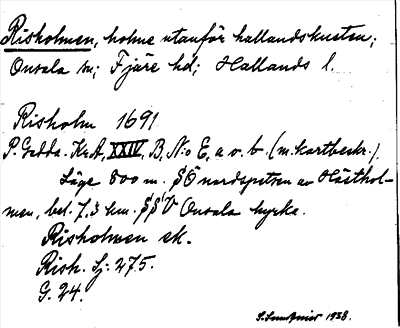 Risholmen, holme utanför hallandskusten;
Onsala sn; Fjäre hd; Hallands l.
Risholm 1691
P. Gedda. Kr.A, XXIV, B, N:o E, a o. b. (m. kartbeskr.).
Läge 800 m. SÖ nordspetsen av Hästhol-
men, bel. 7,5 km. SSV Onsala kyrka.
Risholmen sk.
Risk. Sj: 275.
G. 24.
1938.